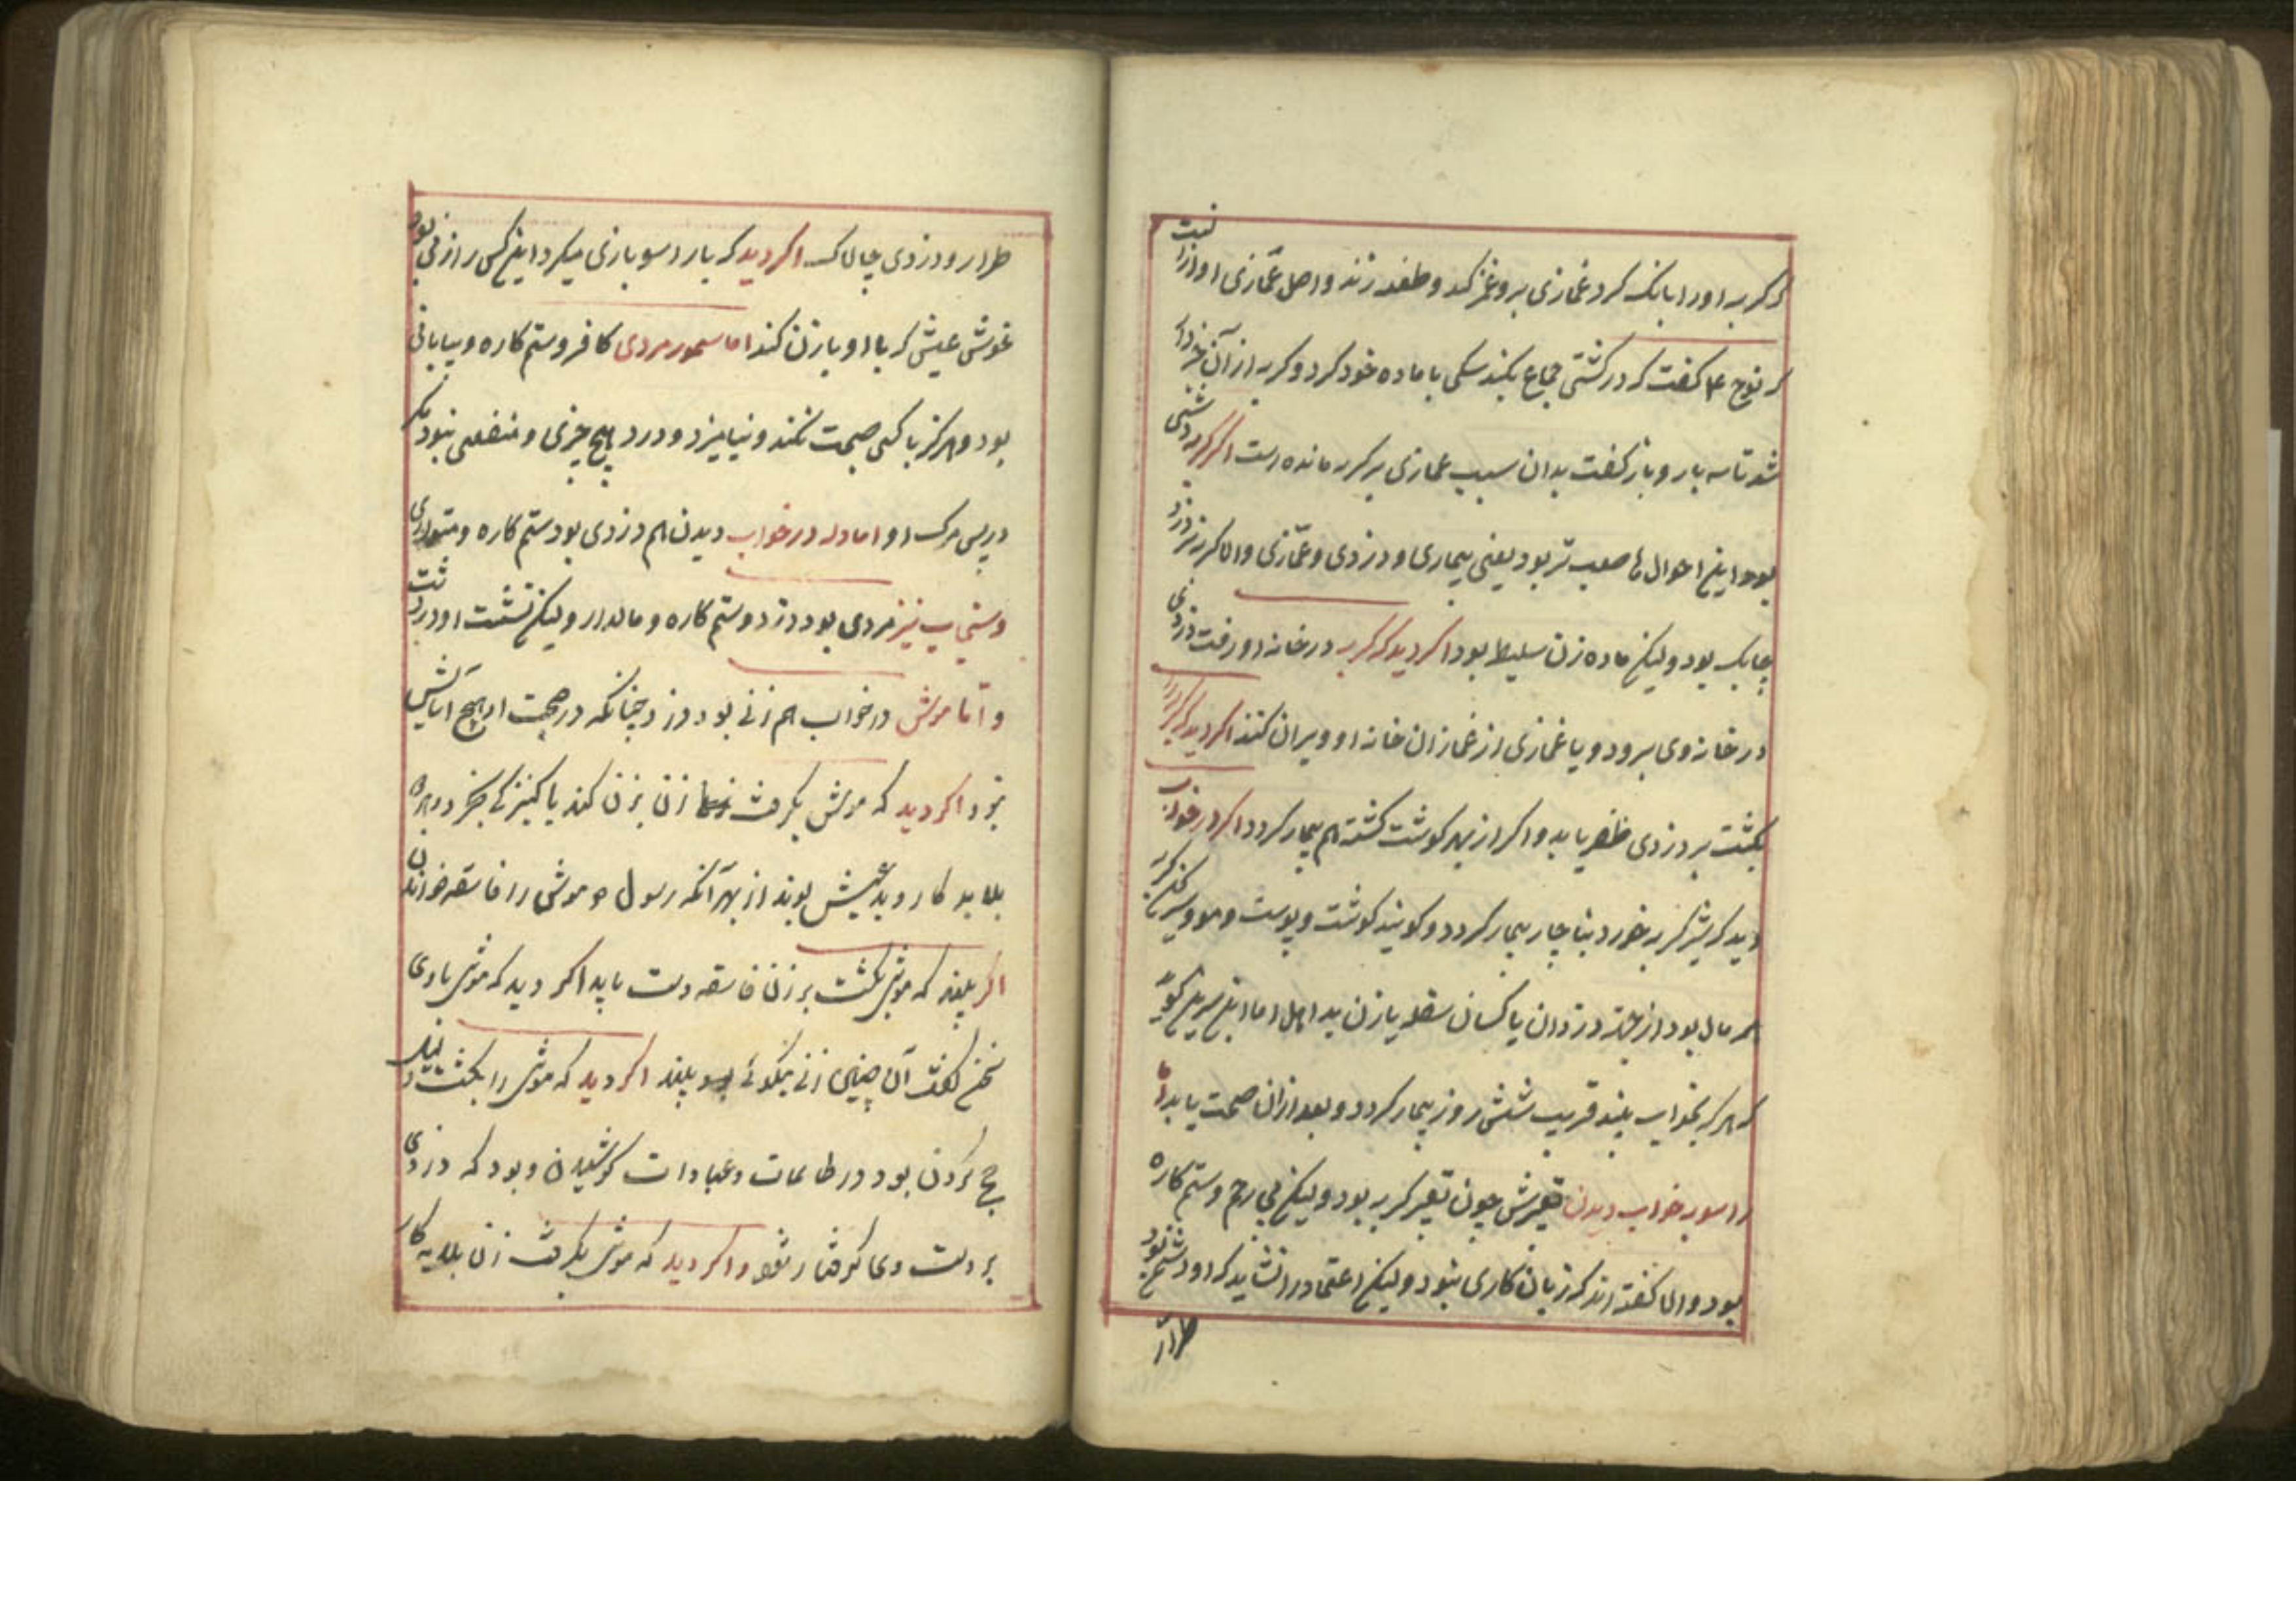 که گربه او را بانک کرد غمازی برو غمز کند و طعنه زند و اصل غمازی او ازان است
که نوح عم گفت که در کشتی جماع نکنند سکی با ماده خود کرد و گربه از آن خبر داد
شد تا سه بار و باز گفت بدان سبب غمازی بر گربه مانده است اگر گربه دشتی
بود این احوال ها صعب تر بود یعنی بیماری و دزدی و غمازی و اما گربه نر دزد
چابک بود و لیکن ماده زن سلیط بود اگر دید که گربه در خانه او رفت دزدی
در خانه وی برود و یا غمازی از غمازان خانه او ویران کند اگر دید که گربه را
بکشت بر دزدی ظفر یابد و اگر از بهر گوشت کشت هم بیمار گردد اگر در خواب
دید که شیر گربه خورد بناچار بیمار گردد و گویند گوشت و پوست و موی
همه مال بود از جهة دزدان یا کسان سفله یا زن بد اصل اما ابن سیرین گوید
که هر که بخواب بیند قریب شش روز بیمار گردد و بعد از آن صحت یابد اما
راسو بخواب دیدن تعبیرش چون تعبیر گربه بود و لیکن بی رحم و ستم کاره
بود و اما گفته اند که زیان کاری نبود و لیکن اعتماد را نشاید که او دشمن بود
طرار
طرار و دزدی چالاک اگر دید که با راسو بازی میکرد این کس را زنی بود
خوش عیش که با او بازن کند اما سمور مردی کافر و ستم کاره و بیابانی
بود و هرگز با کسی صحبت نکند و نیامیزد و درو هیچ خیری و منفعتی نبود مگر
در پس مرگ او اما دله در خواب دیدن هم دزدی بود ستم کاره و متواری
و سنجاب نیز مردی بود دزد و ستم کاره و مالدار و لیکن نشست او در
و اما موش در خواب هم زنی بود دزد چنانکه در صحبت او هیچ آسایش
نبود اگر دید که موش بگرفت زنی بزنی کند یا کنیزکی بخرد و بهره
بلایه کار و بد عیش بوند از بهر آنکه رسول ص موش را فاسقه خواند
اگر بیند که موش بکشت بر زنی فاسقه دست یابد اگر دید که موش با وی
سخن گفت آن چنین زنی نیکوئی بیند اگر دید که موش را بکشت دلیل
حج کردن بود در طاعات و عبادات کوشیدن و بود که دزدی
بر دست وی گرفتار شود و اگر دید که موش بگرفت زنی بلایه کار